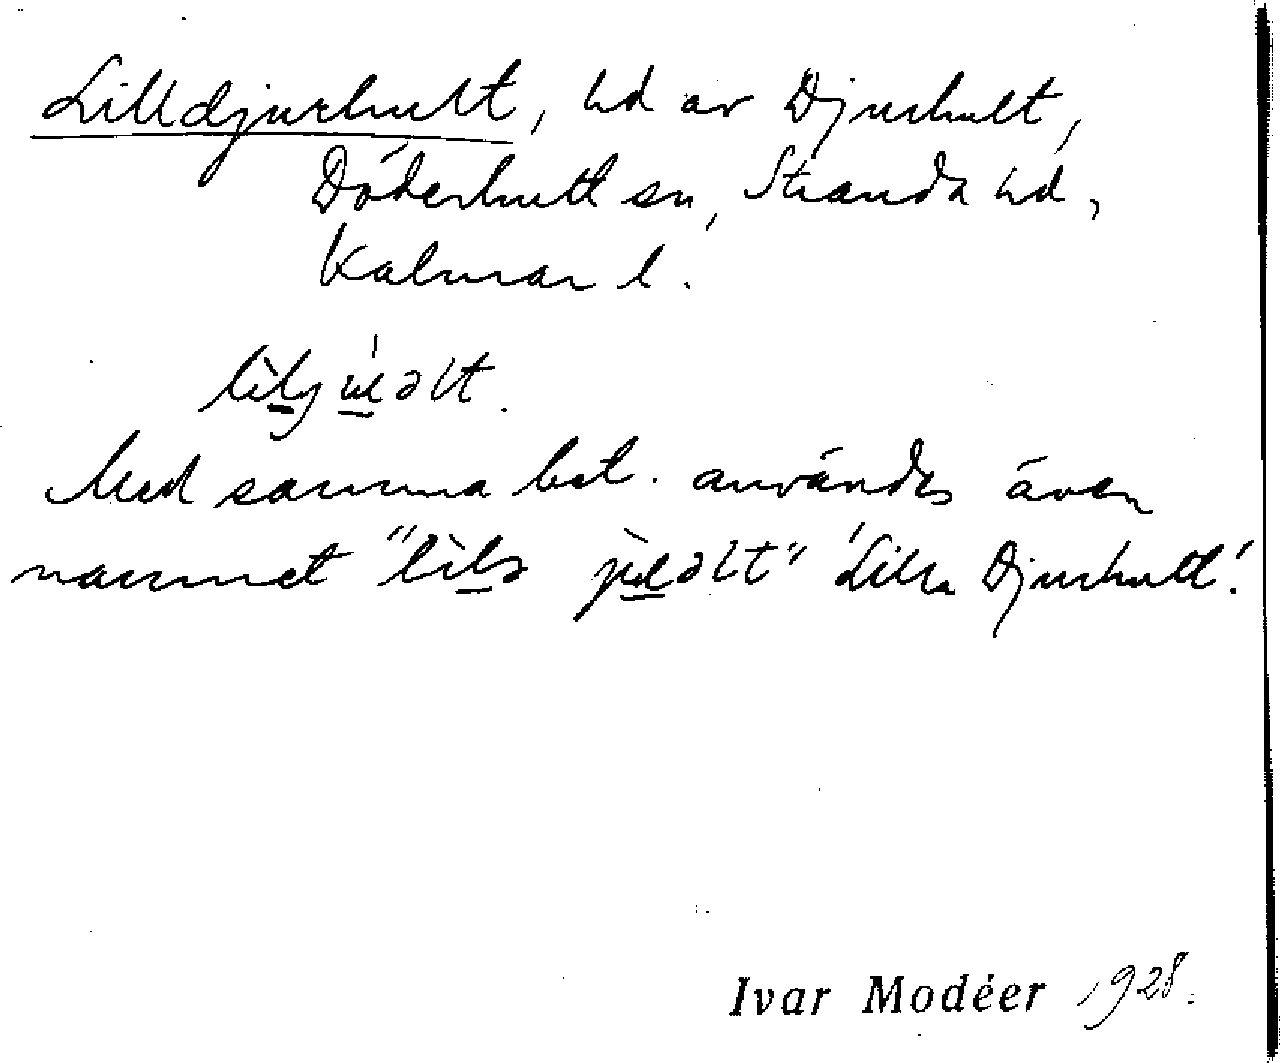 Lilldjurhult, hd av Djurhult,
Döderhult sn, Stranda hd,
Kalmar l.
Med samma bet. användes även
namnet "lila jült" 'Lilla Djurhult'.
Ivar Modéer 1928.